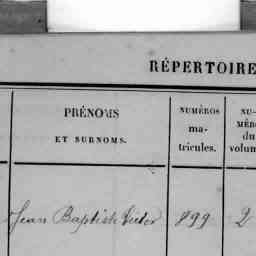 RÉPERTOIRE
PRÉNOMS
ET SURNOMS.
NUMÉROS
ma-
tricules.
NU-
MÉRO
du
volum
Jean Baptiste Victor 899 2